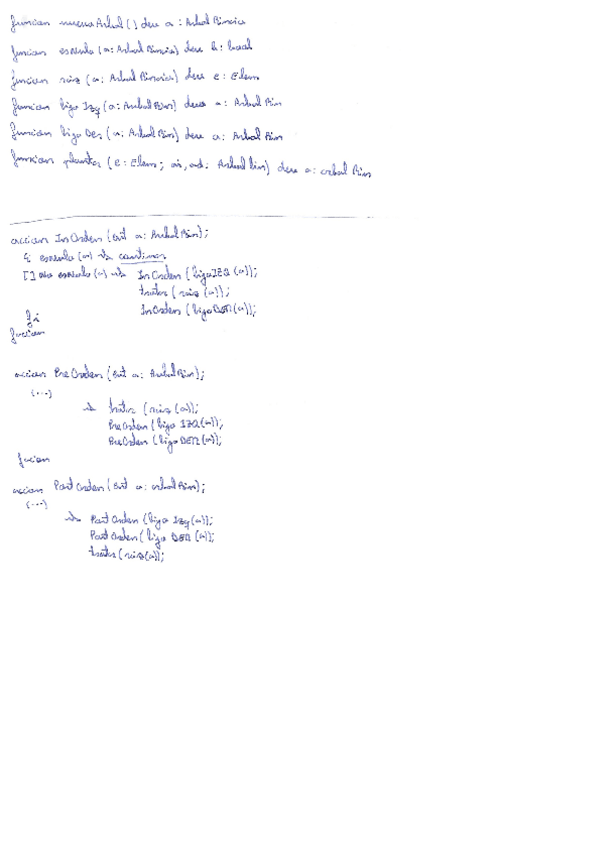 funcion nuevoArbol () dev a : Arbol Binario
funcion esnulo (a: Arbol Binario) dev b: bool
funcion raiz (a: Arbol Binario) dev e: Elem
funcion hijo Izq (a: Arbol Bin) dev a: Arbol Bin
funcion hijo Der (a: Arbol Bin) dev a: Arbol Bin
funcion plantar (e: Elem; ai, ad: Arbol bin) dev a: arbol Bin
accion InOrden (ent a: Arbol Bin);
si esnulo (a) → continuar
[] no esnulo (a) → InOrden (hijoIZQ (a));
tratar (raiz (a));
InOrden (hijoDER(a));
fi
faccion
accion PreOrden (ent a: Arbol Bin);
(...)
→ tratar (raiz (a));
PreOrden (hijo IZQ(a));
PreOrden (hijo DER(a));
faccion
accion PostOrden (ent a: arbol Bin);
(...)
→ PostOrden (hijo Izq(a));
PostOrden (hijo DER (a));
tratar (raiz(a));